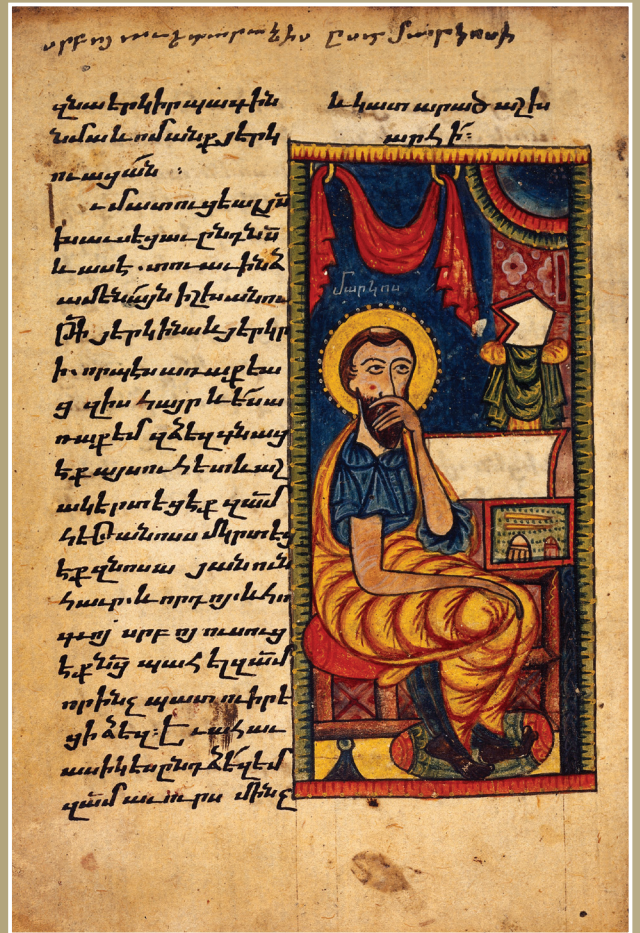 սրբոյ աւետարանիս ըստ մարկոսի
զնա երկիր պագին
նմա և ոմանք յերկ
ուացան ։
և մատուցեալ յս
խաւսեցաւ ընդ նս
և ասէ . տուաւ ինձ
ամենայն իշխանու
թի յերկինս և յերկր
ի . որպէս առաքեա
ց զիս հայր և ես ա
ռաքեմ զձեզ գնաց
էք այսուհետև աշ
ակերտեցէք զամ
հեթանոսս մկրտեց
էք զնոսա յանուն
հաւր և որդոյ և հո
գւոյ սրբոյ ուսուց
էք նց պահել զամ
որինչ պատուիրե
ցի ձեզ ։ և ահաւ
ասիկ ես ընդ ձեզ եմ
զամ աւուրս մինչ
և կատարած աշխ
արհի ։
մարկոս